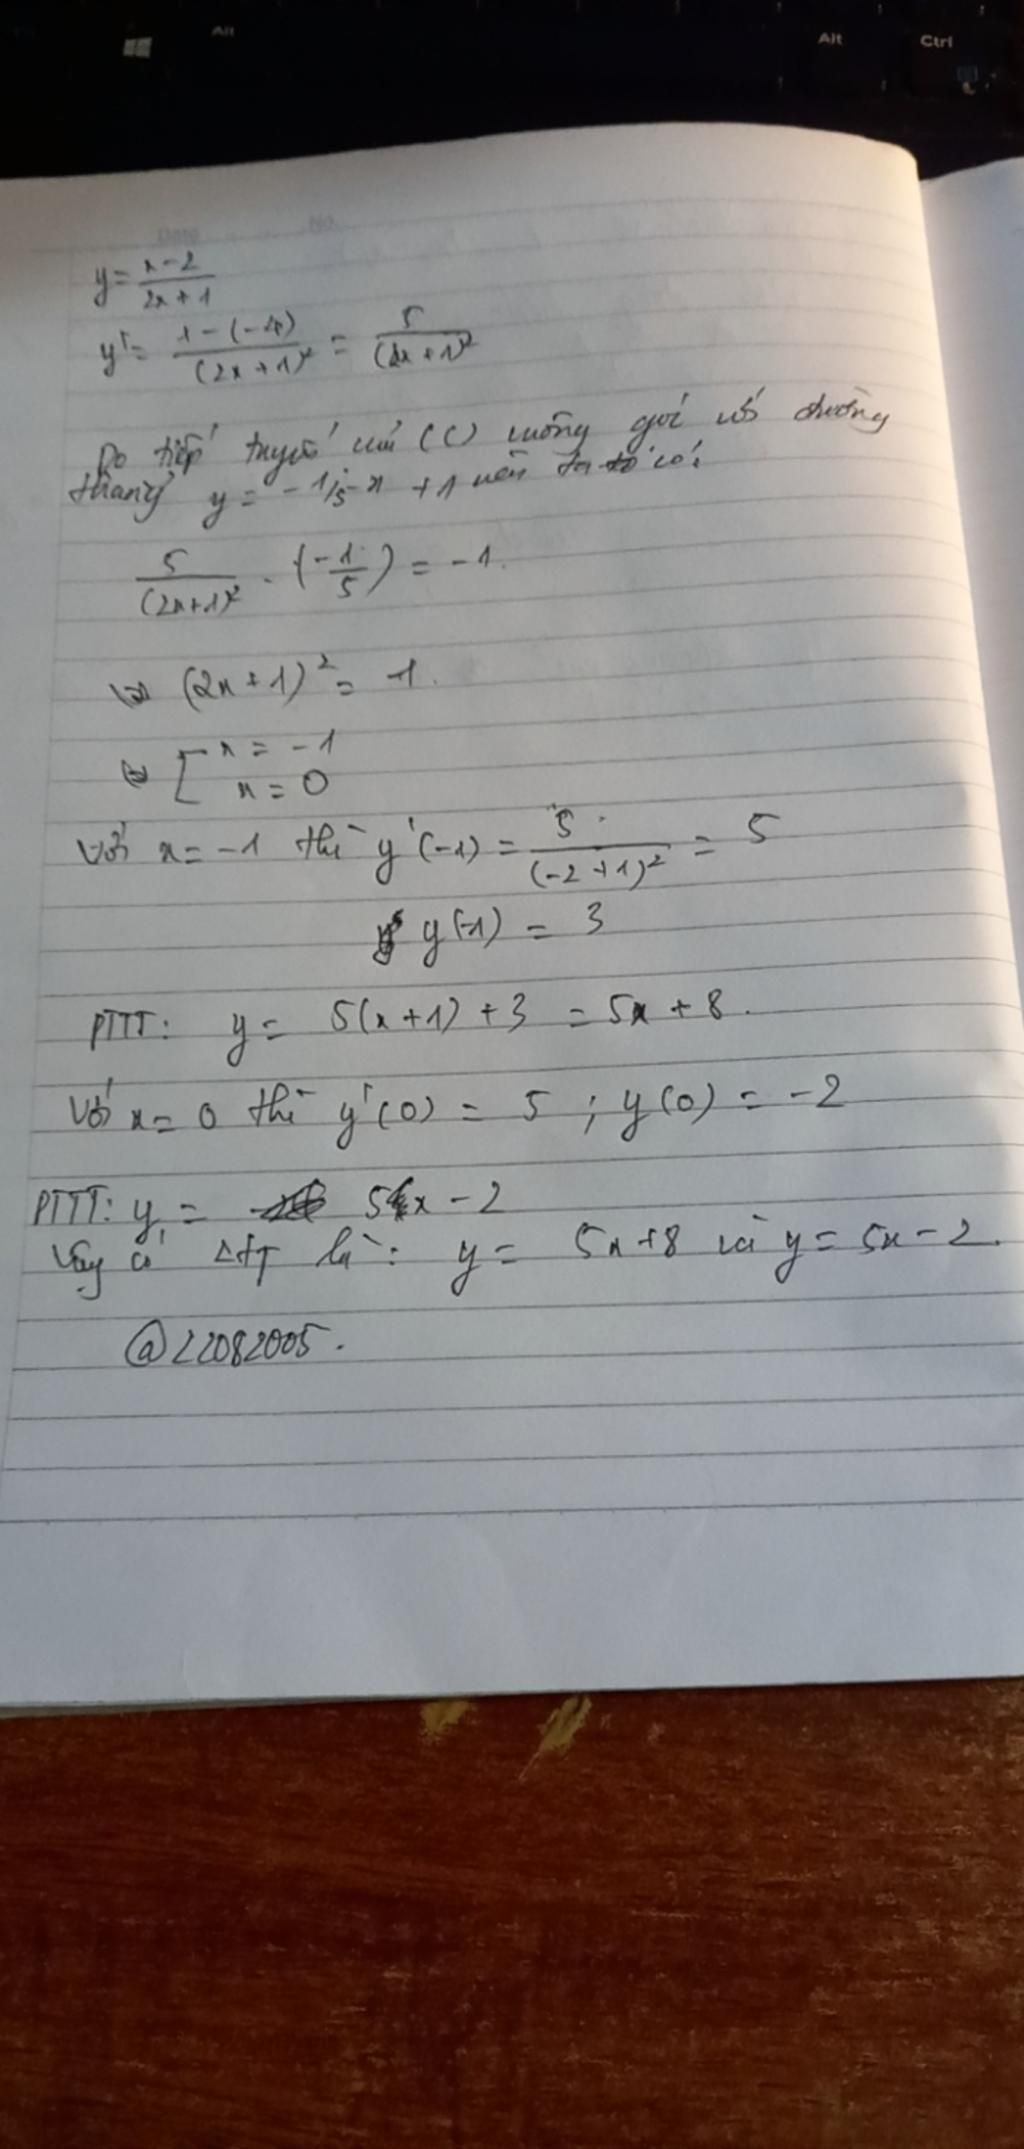 Alt
Alt
Ctrl
y = \frac{x-2}{2x+1}
y' = \frac{1-(-4)}{(2x+1)^2} = \frac{5}{(2x+1)^2}
Do tiếp tuyến của (C) vuông góc với đường
thẳng y = -1/5 x + 1 nên ta có:
\frac{5}{(2x+1)^2} . (-\frac{1}{5}) = -1.
<=> (2x+1)^2 = 1.
<=> [ x = -1
x = 0
Với x = -1 thì y'(-1) = \frac{5}{(-2+1)^2} = 5
y(-1) = 3
PTTT: y = 5(x+1) + 3 = 5x + 8.
Với x = 0 thì y'(0) = 5 ; y(0) = -2
PTTT: y = 5x - 2
Vậy có là: y = 5x+8 và y = 5x-2.
@22082005.